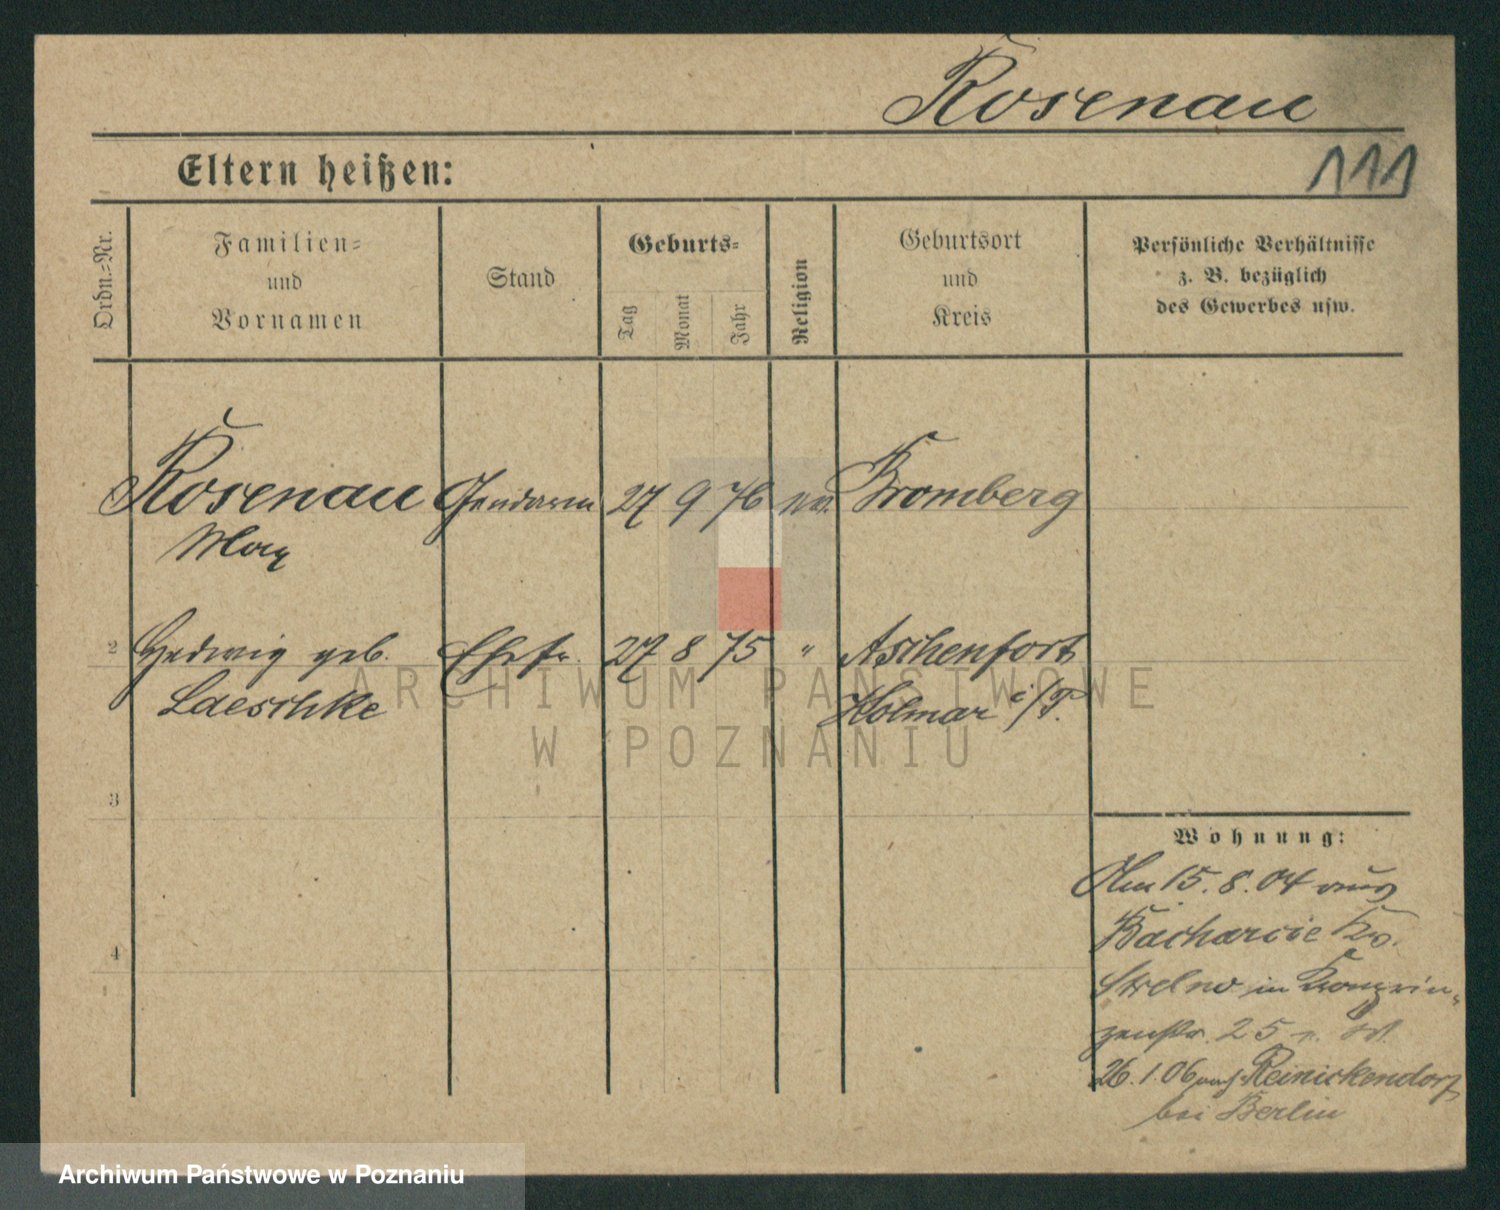 Rosenau
111
Eltern heißen:
Ordn.=Nr.
Familien=
und
Vornamen
Stand
Geburts=
Tag
Monat
Jahr
Religion
Geburtsort
und
Kreis
Persönliche Verhältnisse
z. B. bezüglich
des Gewerbes usw.
Rosenau Gendarm 27 9 76 ev. Bromberg
Max
2 Hedwig geb. Ehefr. 27 8 75 " Aschenfort
Laeschke Kolmar i/P.
3
4
Wohnung:
Am 15. 8. 04 aus
Bacharcie Kr.
Strelno in Kronprin-
zenstr. 25
26. 1. 06 nach Reinickendorf
bei Berlin
ARCHIWUM PAŃSTWOWE
W POZNANIU
Archiwum Państwowe w Poznaniu